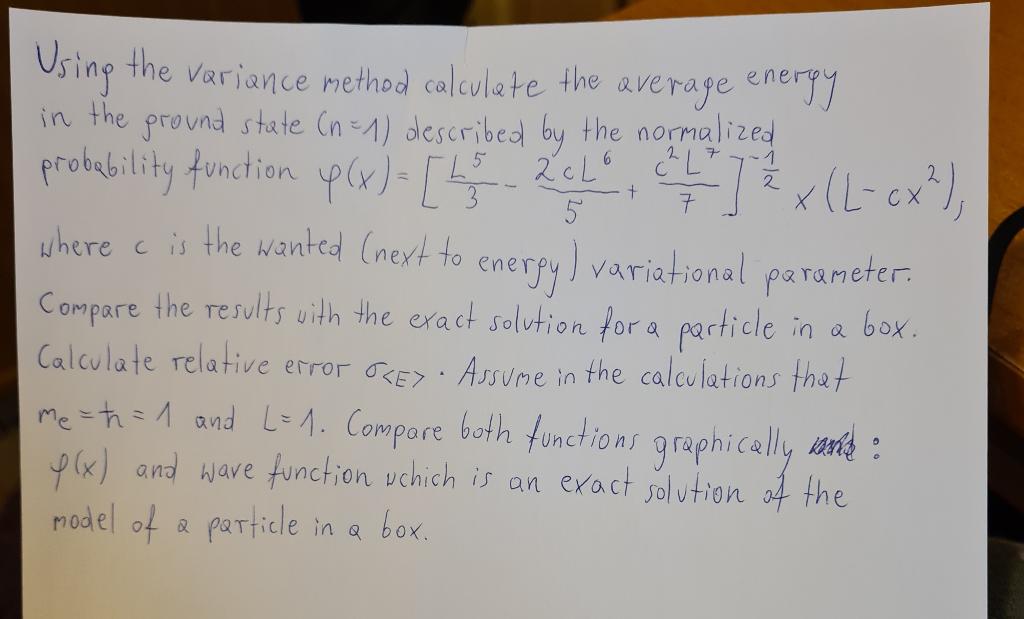 Using the variance method calculate the average energy
in the ground state (n=1) described by the normalized
probability function φ(x) = [L⁵/3 - 2cL⁶/5 + c²L⁷/7]^(-1/2) x(L-cx²),
where c is the wanted (next to energy) variational parameter.
Compare the results with the exact solution for a particle in a box.
Calculate relative error σ<E>. Assume in the calculations that
me = ħ = 1 and L = 1. Compare both functions graphically :
φ(x) and wave function uchich is an exact solution of the
model of a particle in a box.